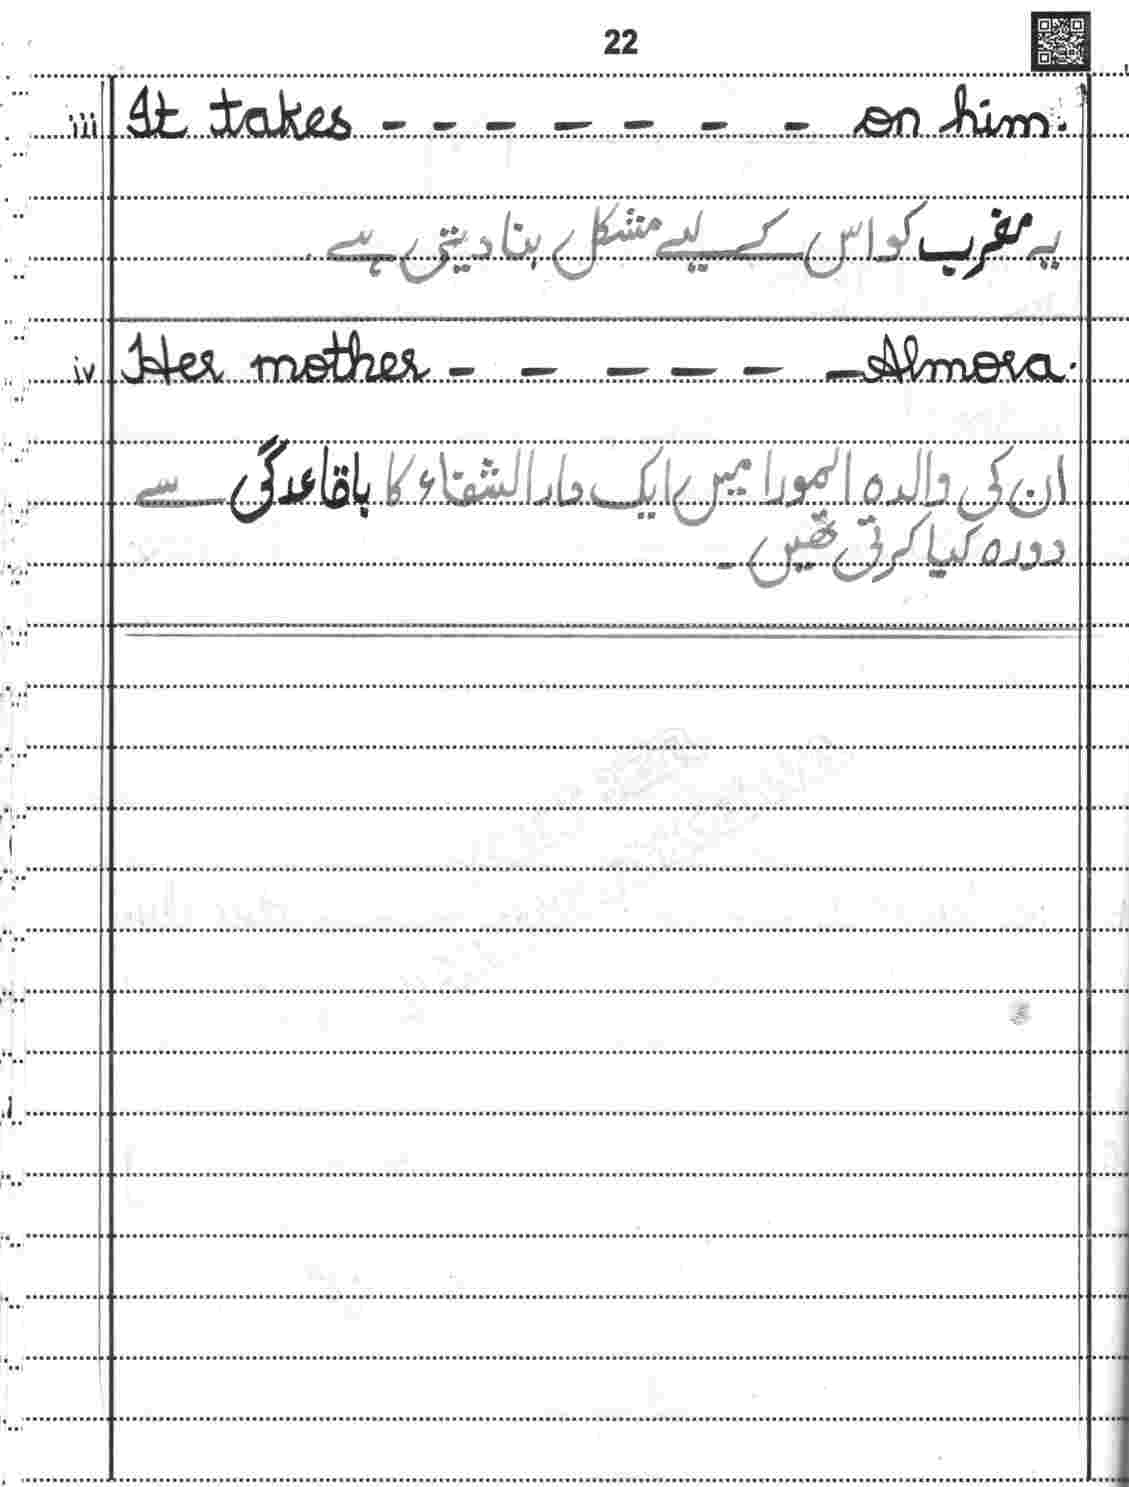 22
iii It takes - - - - - - - on him.
یے مغرب کو اس کے لیے مشکل بنا دیتی ہے .
iv Her mother - - - - - - Almora.
ان کی والدہ المورا میں ایک دار الشفاء کا باقاعدگی سے
دورہ کیا کرتی تھیں ۔